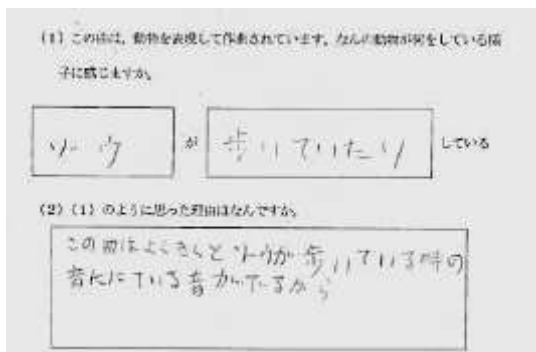 (1) この曲は、動物を表現して作曲されています。なんの動物が何をしている様
子に感じますか。
ゾウ が 歩いていたり している
(2) (1) のように思った理由はなんですか。
この曲は ゾウが歩いている時の
音ににている音がでているから